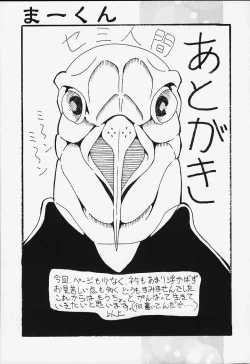 まーくん
セミ人間
あとがき
ミーンミーン
今回、ページも少なく、ネタもあまり浮かばず
お見苦しい点も多く、どうもすみませんでした
これからはもうちょっと、がんばって生きて
いきたいと思います。(何書いてんだか…)
以上